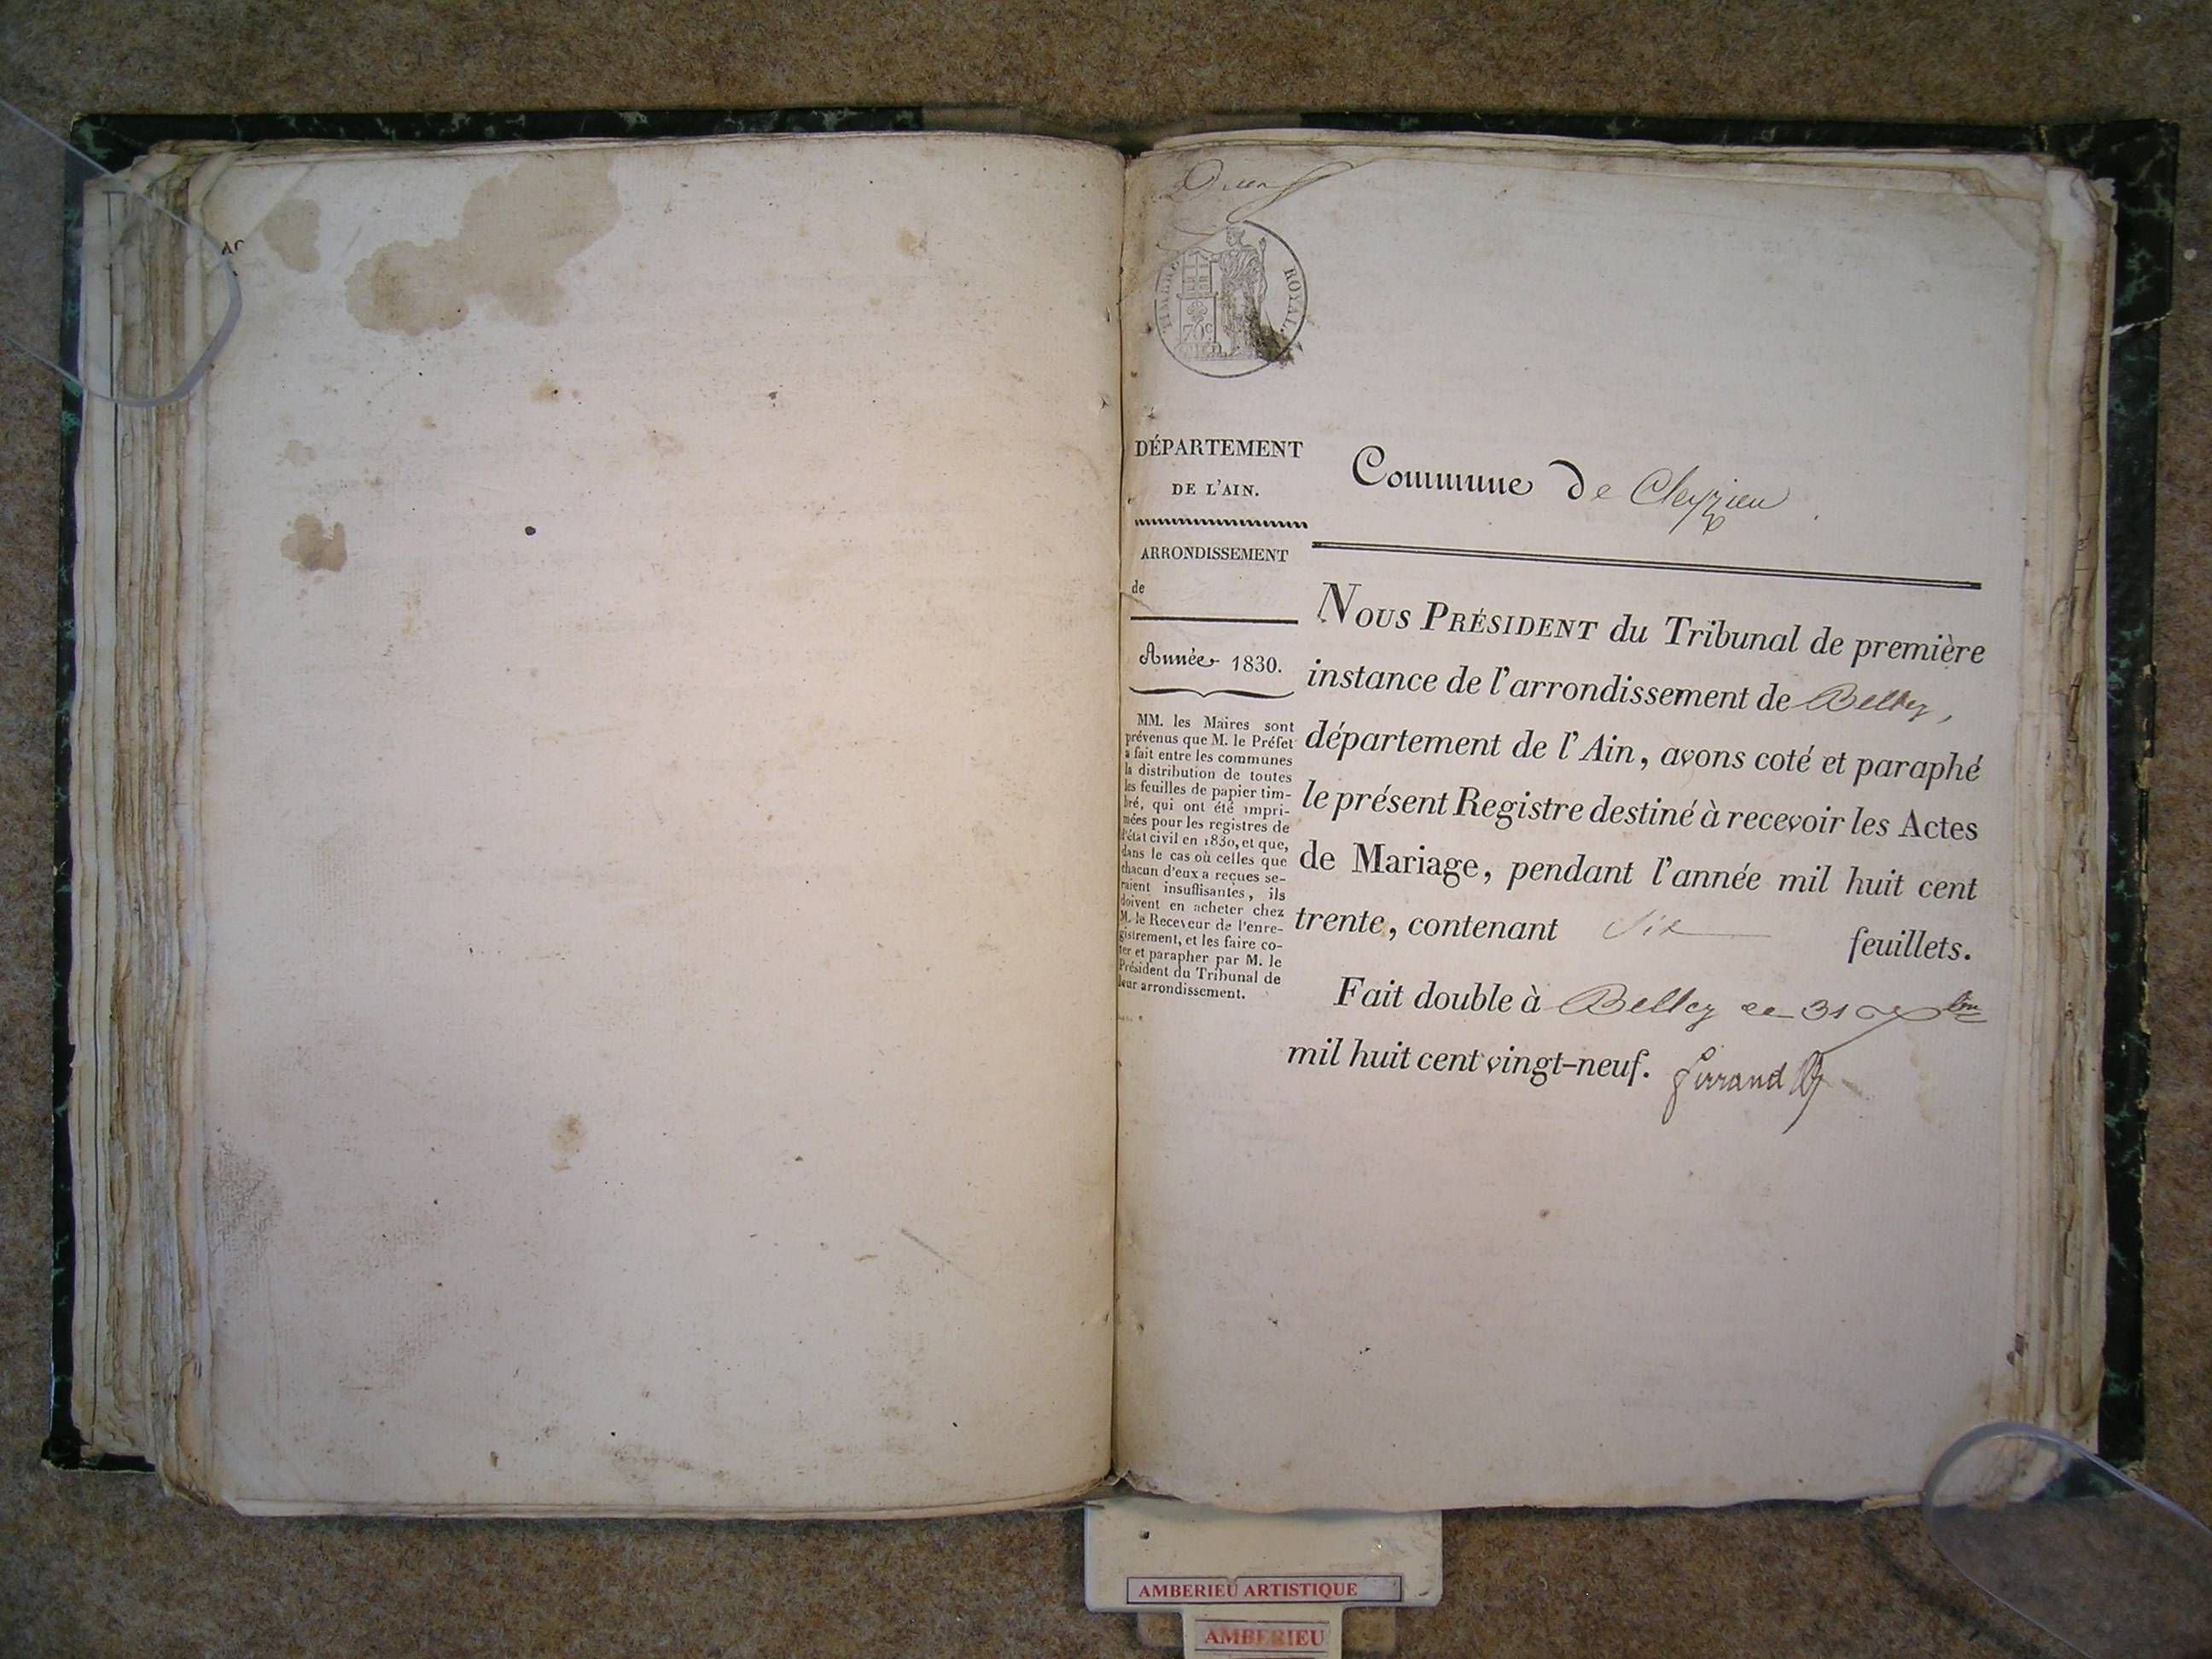 TIMBRE ROYAL
70c
DÉPARTEMENT
DE L'AIN.
ARRONDISSEMENT
de
Année 1830.
MM. les Maires sont
prévenus que M. le Préfet
a fait entre les communes
la distribution de toutes
les feuilles de papier tim-
bré, qui ont été impri-
mées pour les registres de
l'état civil en 1830, et que,
dans le cas où celles que
chacun d'eux a reçues se-
raient insuffisantes, ils
doivent en acheter chez
M. le Receveur de l'enre-
gistrement, et les faire co-
ter et parapher par M. le
Président du Tribunal de
leur arrondissement.
Commune de Cleyzieu
NOUS PRÉSIDENT du Tribunal de première
instance de l'arrondissement de Belley,
département de l'Ain, avons coté et paraphé
le présent Registre destiné à recevoir les Actes
de Mariage, pendant l'année mil huit cent
trente, contenant Six feuillets.
Fait double à Belley ce 31 Xbre
mil huit cent vingt-neuf. ferrand
AMBERIEU ARTISTIQUE
AMBERIEU